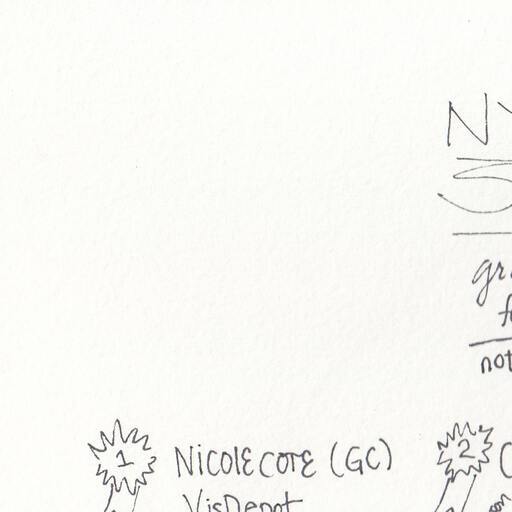 NY
5
gr
f
not
1 Nicole Cote (GC) 2
VisDepot